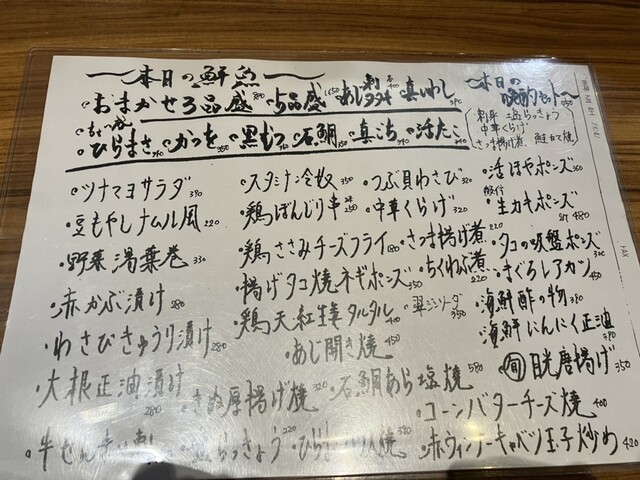 本日の鮮魚
・おまかせ3品盛 ・5品盛 1650 ・あじ 刺 タタキ ・真いわし
・ひらまさ ・かつを ・黒むつ ・石鯛 ・真こち ・活たこ
〜本日の晩酌セット〜
中華くらげ
さつま揚げ煮
・ツナマヨサラダ 390
・豆もやしナムル風 220
・野菜湯葉巻 330
・赤かぶ漬け 280
・わさびきゅうり漬け 280
・大根正油漬け 280
・スタミナ冷奴 350
・鶏ぼんじり串 250
・鶏ささみチーズフライ 180
・揚げタコ焼ネギポンズ 350
・鶏天紅生姜タルタル 400
・あじ開き焼 450
・きぬ厚揚げ焼 320
・石鯛あら塩焼 580
・つぶ貝わさび 320
・中華くらげ 320
・さつま揚げ煮 220
・ちくわぶ煮 220
・活ほやポンズ 360
・生カキポンズ 480
・タコの吸盤ポンズ 300
・まぐろレアカツ 450
・海鮮酢の物 390
・海鮮にんにく正油 390
・旬 目光唐揚げ 350
・コーンバターチーズ焼 400
・赤ウィンナーキャベツ玉子炒め 420
らっきょう 220